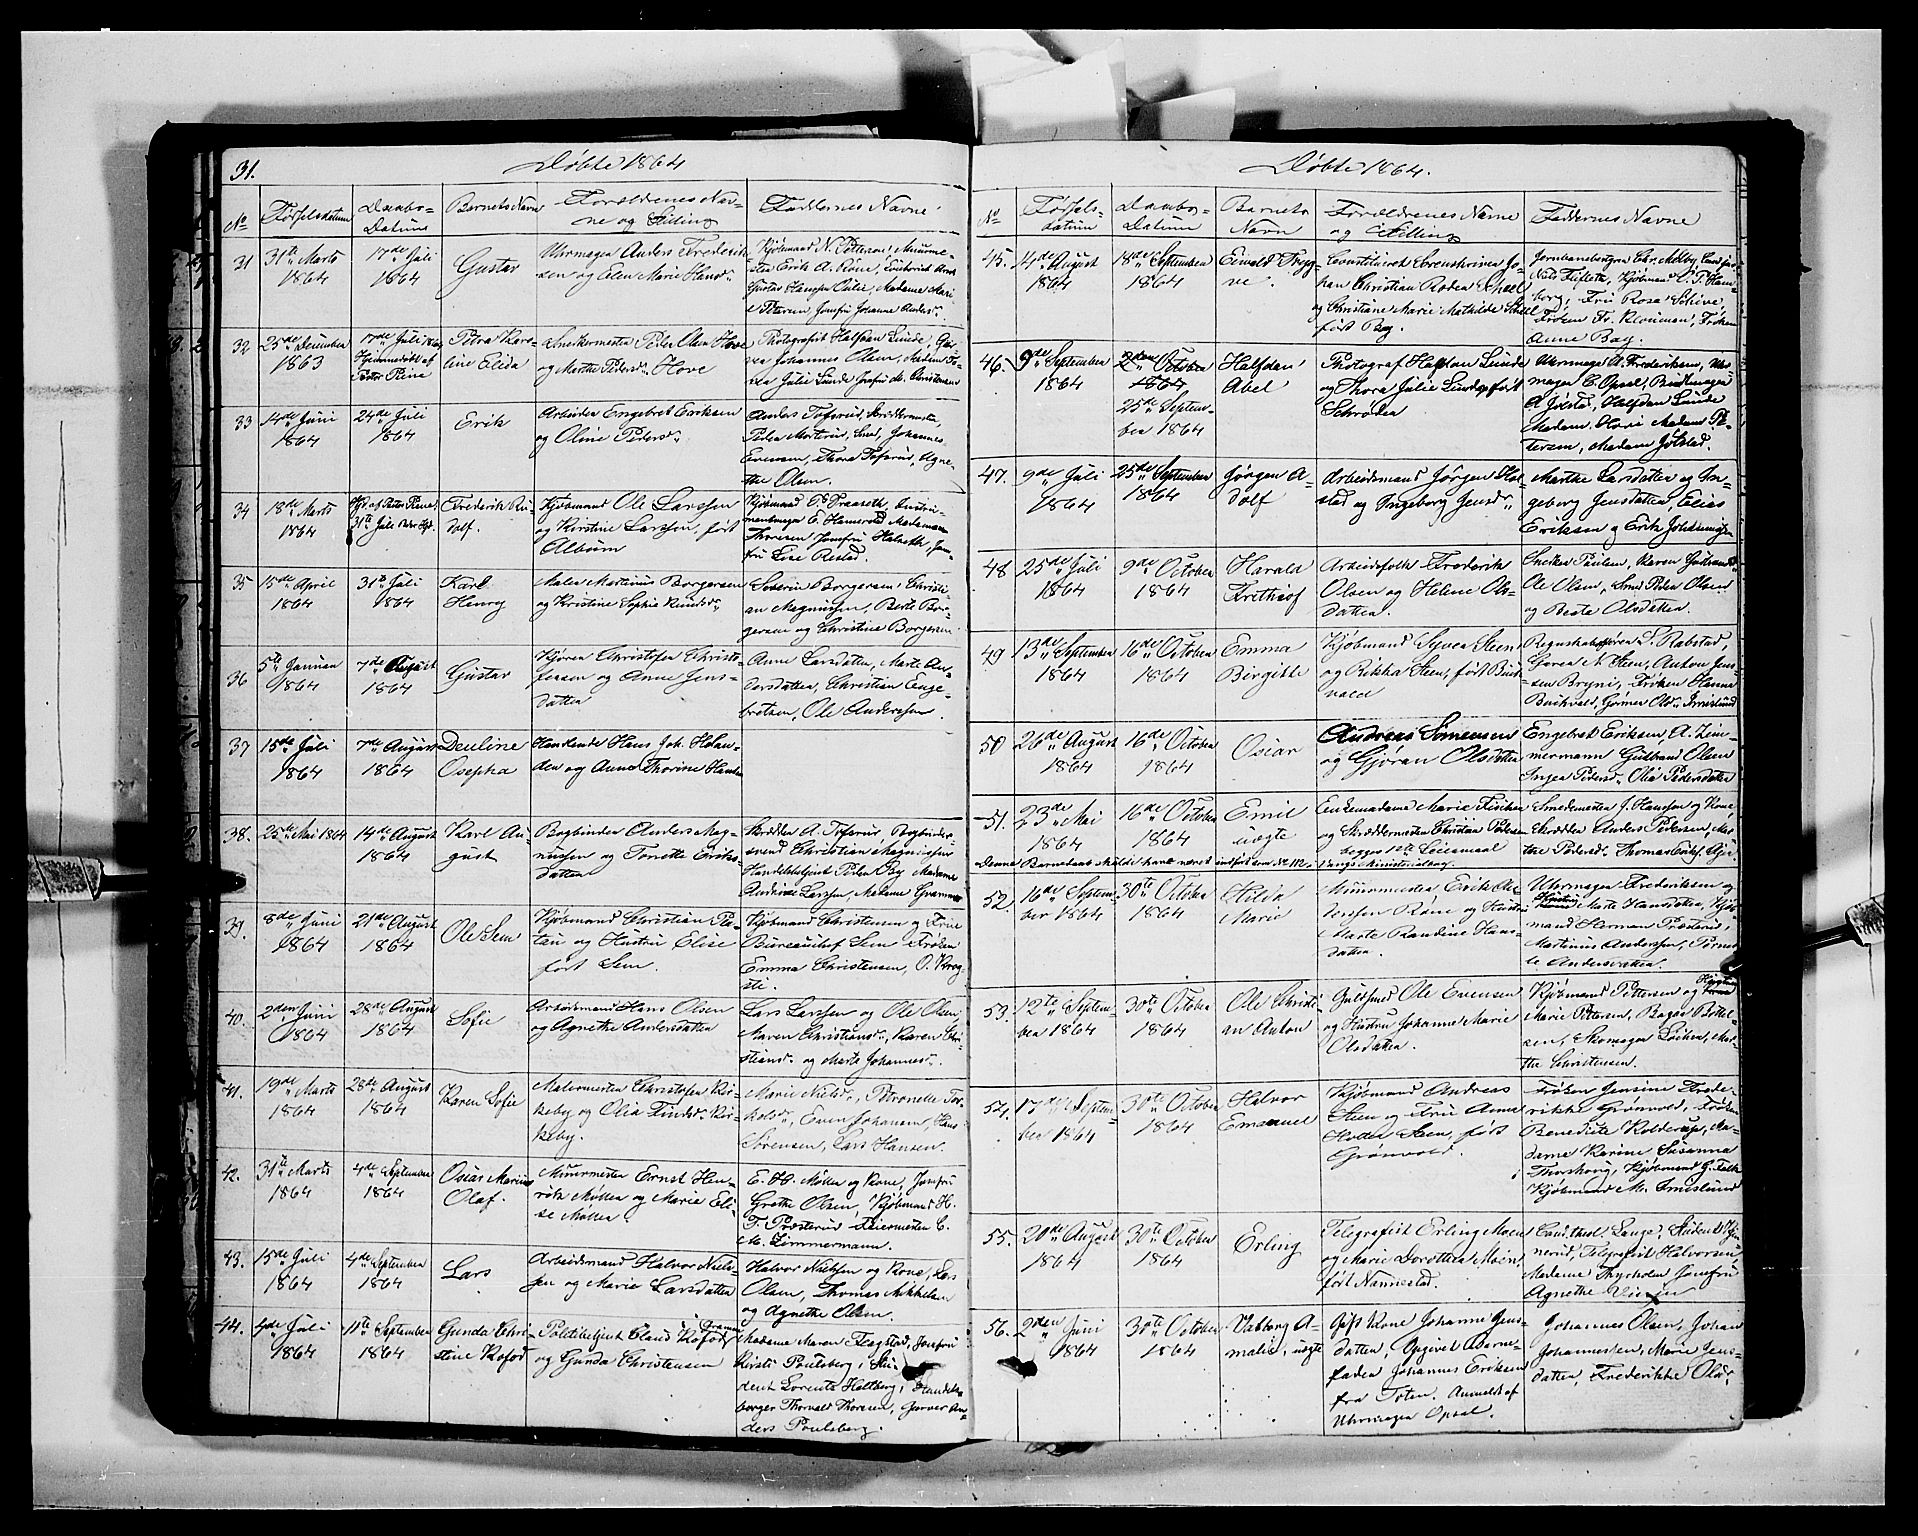 31.
Døbte 1864
No
Fødselsdatum
Daabs-
Datum
Barnets Navn
Forældrenes Nav-
ne og Stilling
Faddernes Navne
31
31te Marts
1864
17de Juli
1864
Gustav
Uhrmager Anders Frederik-
sen og Olea Marie Hansd.
Kjøbmand N. Pettersen, Muurme-
ster Erik A. Røne,
Gustav Hanssen Madame Mari
e Petersen Jomfru Johanne Andersd.
32
25de December
1863
17de Juli 1864
Hjemmedøbt af
Pastor Peine
Petra Karo-
line Elida
Snedkermester Peder Olsen Hove
og Marthe Pedersd. Hove
Photografist Halfdan Lunde,
Johannes Olsen, Madam
Julie Lunde Jomfru Christensen
33
14de Juni
1864
24de Juli
1864
Erik
Arbeider Engebret Eriksen
og Oline Pedersd.
Anders Toserud, Skræddermester,
Peder Morterud, Smed, Johannes
Evensen, Thora Toserud, Agne-
the Olsen.
34
18de Marts
1864
Hjd. af Pastor Peine
31te Juli
Frederik Ru-
dolf.
Kjøbmand Ole Larssen
og Kirstine Larssen, født
Album
Kjøbmand P. Praaseth, Instru-
mentmager C. Hamsvold Madame
Thoresen Jomfru Halseth, Jom-
fru Lise Restad.
35
15de April
1864
31te Juli
1864
Karl
Henry
Maler Martinus Borgersen
og Kristine Sophie Knudsd.
Severin Borgersen, Christi-
an Magnussen, Berte Bor-
gersen og Christine Borgersen
36
5te Januar
1864
7de August
1864
Gustav
Kjører Christofer Christo-
fersen og Anne Jens-
datter
Anne Larsdatter, Marte An-
dersdatter, Christian Enge-
bretsen, Ole Anderssen.
37
15de Juli
1864
7de August
1864
Deuline
Osepha
Handlende Hans Joh. Holan-
der og Anne Thorine Hansen
38.
25de Mai 1864
14de August
1864
Karl Au-
gust
Bogbinder Anders Mag-
nussen og Tonette Eriks-
datter
Skrædder A. Toserud Bogbinder
svend Christian Magnussen
Handelsbetjent Peder By Madame
Andrine Larssen, Madame Grammer
39.
8de Juni
1864
21de August
1864
Ole Sem
Kjøbmand Christian Pe-
tau og Hustru Elise
født Sem.
Kjøbmand Christensen og Frue
Bureauchef Sem Frøken
Emma Christensen, O. Krog-
sti.
40.
2den Juni
1864
28de August
1864
Sofie
Arbeidsmand Hans Olsen
og Agnethe Andersdatter
Lars Larssen og Ole Olsen,
Maren Christiansd., Karen Chri-
stiansd. og Marte Johannesd.
41.
19de Marts
1864
28de August
1864
Karen Sofie
Malermester Christofer Kir-
keby og Olia Kir-
keby.
Marie Nielsd., Petronelle Tor-
kelsd., Even Johansen, Hans
Sørensen, Lars Hansen.
42.
31te Marts
1864
4de September
1864
Oscar Marius
Olaf.
Muurmester Ernst Hen-
rik Møller og Marie Eli-
se Møller.
E. H. Møller og Kone, Jomfru
Grethe Olsen, Kjøbmand H.
T. Præsterud, Feiermester C.
M. Zimmermann.
43.
15de Juli
1864
4de September
1864
Lars
Arbeidsmand Halvor Niels-
sen og Marie Larsdatter
Halvor Nielssen og Kone, Lars
Olsen, Thomas Mikkelsen
og Agnethe Olsen.
44.
4de Juli
1864
11te September
1864
Gunda Chri-
stine Kofod
Politibetjent Claus Kofod
og Gunda Christensen
Madame Maren Flagstad, Jomfru
Kirsti Poulsberg, Stu-
dent Lorentz Holtberg, Handels-
borger Thorvald Thoresen, Garver An-
ders Poulsberg.
Døbte 1864.
No
Fødsels-
datum
Daabs-
Datum
Barnets
Navn
Forældrenes Navne
og Stilling
Faddernes Navne
45.
14de August
1864
18de September
1864
Eiwald Tryg-
ve.
Constitueret Sorenskriver Jo-
han Christian Roden Scheel
og Christiane Marie Mathilde Scheel
født Bay.
Jernbanebestyrer Chr. Melby,
Nils Kjøbmand C. P. Ham-
borg, Fru Rosa Schive,
Frøken Fr. Klouman, Frøken
Anne Bay.
46.
9de September
1864
2den October
1864
25de Septem-
ber 1864
Halfdan
Abel
Photograf Halfdan Lunde
og Thora Julie Lunde, født
Schrøder
Uhrmager A. Frederiksen, Uhr-
mager C. Opsal, Buntmager
A Jølstad, Halfdan Lunde
Madam Hovi Madam Pe-
tersen, Madam Jølstad.
47.
9de Juli
1864
25de September
1864
Jørgen A-
dolf
Arbeidsmand Jørgen Hol-
stad og Ingeborg Jensd.
Marthe Larsdatter og In-
geborg Jensdatter, Elias
Eriksen og Erik
48
25de Juli
1864
9de October
1864
Harald
Frithiof
Arbeidsfolk Frederik
Olsen og Helene Ols-
datter.
Snedker Paulsen, Karen Gulbrandsd.
Ole Olsen, Smed Peder Olsen
og Berte Olsdatter.
49
13de September
1864
16de October
1864
Emma
Birgitte
Kjøbmand Syver Steen
og Rikka Steen, født Buch-
vald
Regnskabsfører L. Rabstad,
Garver N. Steen, Anton Jens-
sen Bryni, Frøken Hanna
Buchvald,
50
26de August
1864
16de October
1864
Oscar
Andreas Sørensen
og Gjøran Olsdatter
Engebret Eriksen, A. Zim-
mermann Gulbrand Olsen
Inger Pedersd. Olia Pedersdatter
51.
23de Mai
1864
16de October
1864
Emil
uægte
Enkemadame Marie Fischer
og Skræddermester Christian Pedersen
begges 1ste Leiermaal
Smedemester J. Hanssen og Kone
Skrædder Anders Pedersen, Mar-
the Pedersd. Thomas
Denne Barnedaab skulde have været indført som No 112 i Vangs Ministerialbog.
52.
16de Septem-
ber 1864
30te October
1864
Hilda
Marie
Muurmester Erik An-
derssen Røne og Hustru
Marte Randine Han-
datter.
Uhrmager Frederiksen og
Hustru Marte Hansdatter, Kjøb-
mand Herman Præsterud,
Martinus Anderssen, Pernil-
le Andersdatter.
53.
12te Septem-
ber 1864
30te October
1864
Ole Christi-
an Anton
Guldsmed Ole Evensen
og Hustru Johanne Marie
Olsdatter.
Kjøbmand Pettersen og Hustru
Marie Pettersen, Bager Bottel-
sen, Skomager Løiten, Mar-
the Christensen.
54.
17de Septem-
ber 1864
30te October
1864
Halvor
Emanuel
Kjøbmand Andreas
Steen og Frue Anna
Steen, født
Grønvold.
Frøken Jensine Frede-
rikke Grønvold, Frøken
Benedicte Kolderup, Ma-
dame Karine, Susanna
Thorshoug, Kjøbmand G. Falk
Kjøbmand M. Irneslund
55.
20de August
1864
30te October
1864
Erling
Telegrafist Erling Moen
og Marie Dorothea Moen,
født Nannestad.
Cand. theol. Lange, Student Gjen-
nerud, Telegrafist Halvorsen,
Madame Thyrholm Jomfru
Agnethe
56.
2den Juni
1864
30te October
1864
Valborg A-
malie, uægte
Gift Kone Johanne Jens-
datter, Opgivet Barne-
fader Johannes Eriksen
fra Toten. Anmeldt af
Uhrmager Opsal.
Johannes Olsen, Johan
Johannessen, Marie Jens-
datter, Frederikke Olsd.